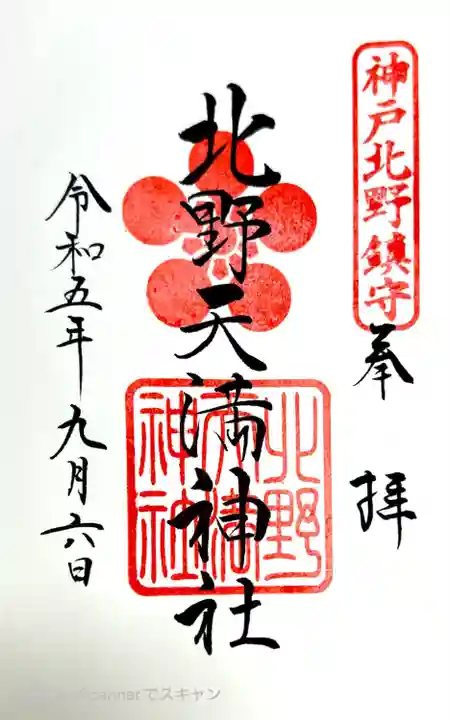 神戸北野鎮守
奉拝
北野天満神社
北野
天満
神社
令和五年九月六日
scannerでスキャン